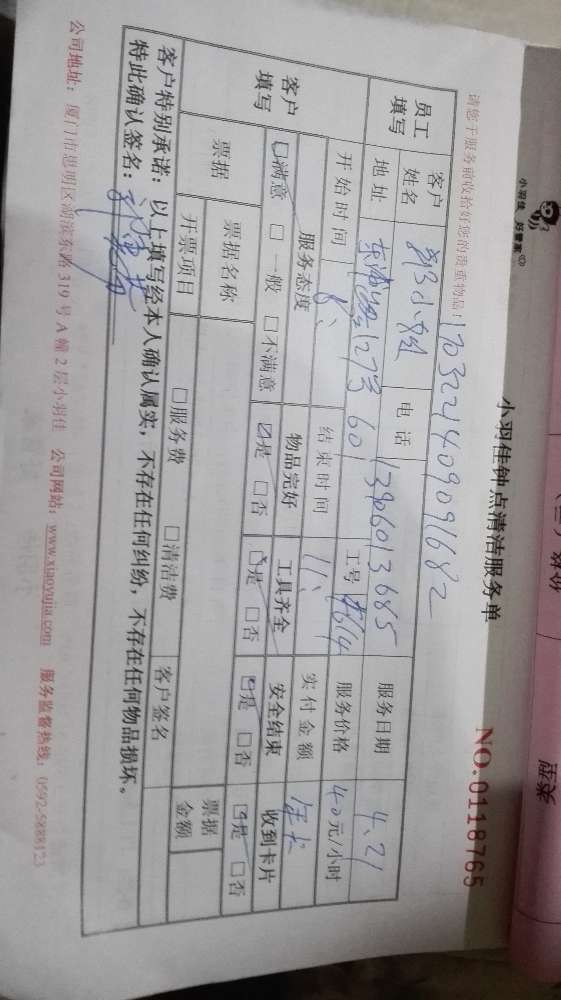 小羽佳 好管家
小羽佳钟点清洁服务单
NO.0118765
请您于服务前收拾好您的贵重物品！
1703221409091682
员工填写 客户姓名 郭小姐 电话 13906013685 服务日期 4、21
地址 127号601 工号 服务价格 40元/小时
客户填写 开始时间 8、 结束时间 11、 实付金额 年卡
服务态度 物品完好 工具齐全 安全结束 收到卡片
☑满意 □一般 □不满意 ☑是 □否 ☑是 □否 ☑是 □否 ☑是 □否
票据 票据名称 票据金额
开票项目 □服务费 □清洁费 客户签名
客户特别承诺：以上填写经本人确认属实，不存在任何纠纷，不存在任何物品损坏。
特此确认签名：
公司地址：厦门市思明区湖滨东路319号A幢2层小羽佳 公司网站：www.xiaoyujia.com 服务监督热线：0592-5888123